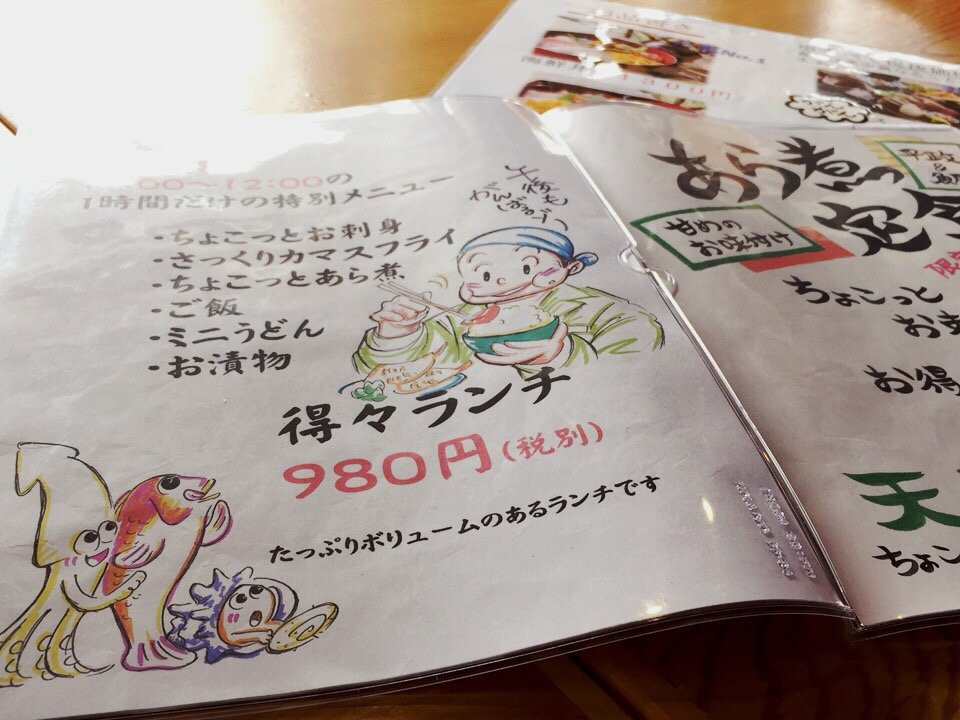 00～12:00の
1時間だけの特別メニュー
・ちょこっとお刺身
・さっくりカマスフライ
・ちょこっとあら煮
・ご飯
・ミニうどん
・お漬物
得々ランチ
980円(税別)
たっぷりボリュームのあるランチです
No.1
1300円
あら煮
定食
甘めの
お味付け
ちょこっと
お得
天
ちょこ